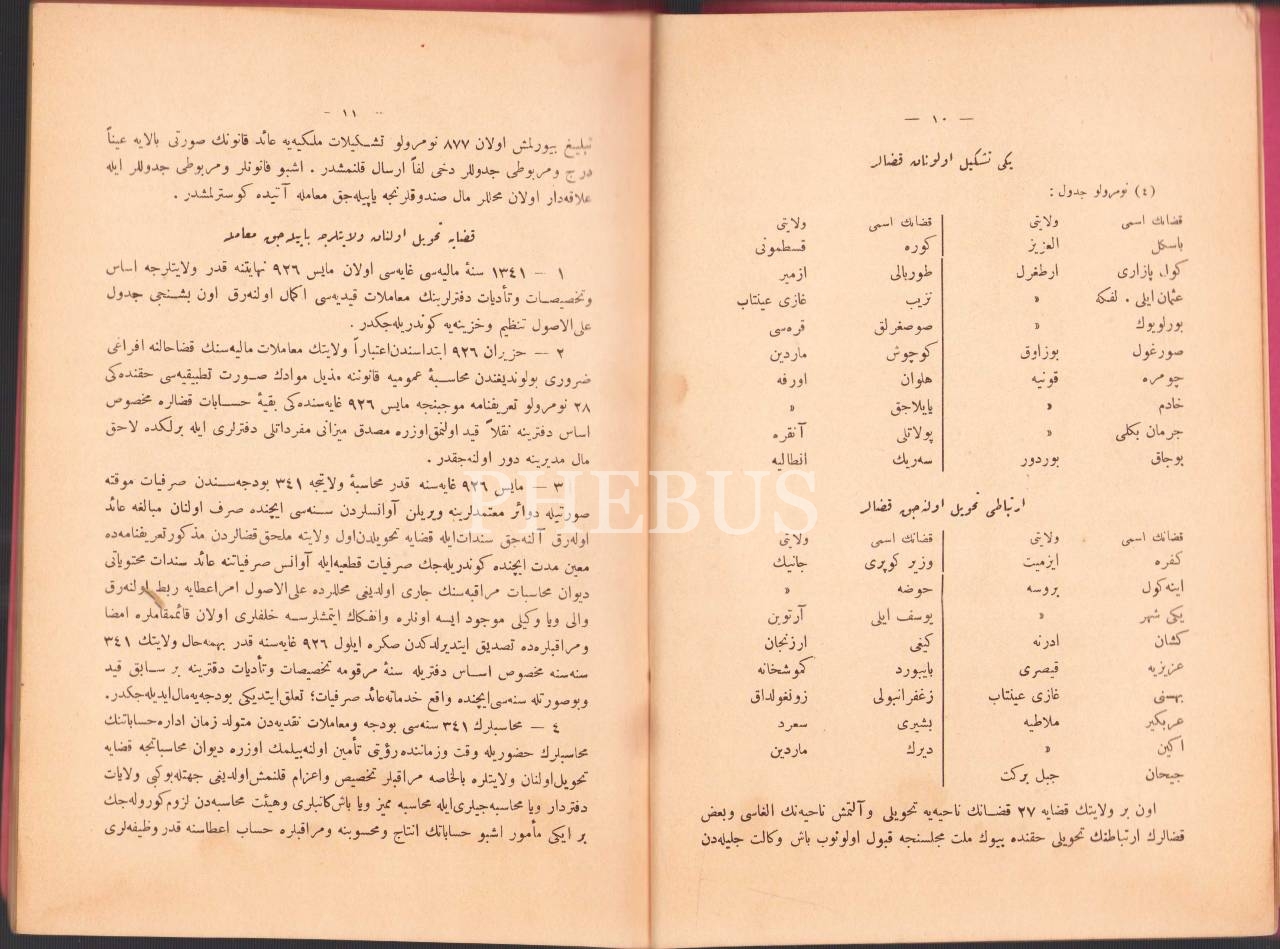 — ١٠ —
یكی تشكیل اولونان قضالر
(٤) نومرولو جدول :
قضانك اسمی ولایتی قضانك اسمی ولایتی
باسكل العزیز كوره قسطمونی
كول پازاری ارطغرل طوربالی ازمیر
عثمان ایلی . لفكه « نزیب غازی عینتاب
بورلویوك « صوصغرلق قره‌سی
صورغول بوزاوق كوچوش ماردین
چومره قونیه هلوان اورفه
خادم « یایلاجق «
جرمان بكلی « پولاتلی آنقره
بوجاق بوردور سه‌ریك انطالیه
ارتباطی تحویل اوله‌جق قضالر
قضانك اسمی ولایتی قضانك اسمی ولایتی
كفره ایزمیت وزیر كوپری جانیك
اینه‌كول بروسه حوضه «
یكی شهر « یوسف ایلی آرتوین
كشان ادرنه كیفی ارزنجان
عزیزیه قیصری بایبورد كموشخانه
بهسنی غازی عینتاب زغفرانبولی زونغولداق
عربكیر ملاطیه بشیری سعرد
اكین « دیرك ماردین
جیحان جبل بركت
اون بر ولایتك قضایه ٢٧ قضانك ناحیه‌یه تحویلی و آلتمش ناحیه‌نك الغاسی و بعض
قضالرك ارتباطنك تحویلی حقنده بیوك ملت مجلسنجه قبول اولونوب باش وكالت جلیله‌دن
- ١١ -
تبلیغ بیورلمش اولان ٨٧٧ نومرولو تشكیلات ملكیه‌یه عائد قانونك صورتی بالایه عیناً
درج و مربوطی جدوللر دخی لفاً ارسال قلنمشدر . اشبو قانونلر و مربوطی جدوللر ایله
علاقه‌دار اولان محللر مال صندوقلرنجه یاپیله‌جق معامله آتیده كوسترلمشدر .
قضایه تحویل اولنان ولایتلرجه یاپیله‌جق معامله
١ — ١٣٤١ سنهٔ مالیه‌سی غایه‌سی اولان مایس ٩٢٦ نهایتنه قدر ولایتلرجه اساس
و تخصیصات و تأدیات دفترلرینك معاملات قیدیه‌سی اكمال اولنه‌رق اون بشنجی جدول
علی‌الاصول تنظیم و خزینه‌یه كوندریله‌جكدر .
٢ — حزیران ٩٢٦ ابتداسندن‌اعتباراً ولایتك معاملات مالیه‌سنك قضاحالنه افراغی
ضروری بولوندیغندن محاسبهٔ عمومیه قانوننه مذیل موادك صورت تطبیقیه‌سی حقنده‌كی
٢٨ نومرولو تعریفنامه موجبنجه مایس ٩٢٦ غایه‌سنده‌كی بقیهٔ حسابات قضالره مخصوص
اساس دفترینه نقلاً قید اولنمق‌اوزره مصدق میزانی مفرداتلی دفترلری ایله برلكده لاحق
مال مدیرینه دور اوله‌جقدر .
٣ — مایس ٩٢٦ غایه‌سنه قدر محاسبهٔ ولایتجه ٣٤١ بودجه‌سندن صرفیات موقته
صورتیله دوائر معتمدلرینه ویریلن آوانسلردن سنه‌سی ایچنده صرف اولنان مبالغه عائد
اوله‌رق آلنه‌جق سندات‌ایله قضایه تحویلدن‌اول ولایته ملحق قضالردن مذكور تعریفنامه‌ده
معین مدت ایچنده كوندریله‌جك صرفیات قطعیه‌ایله آوانس صرفیاتنه عائد سندات محتویاتی
دیوان محاسبات مراقبه‌سنك جاری اولدیغی محللرده علی‌الاصول امراعطایه ربط اولنه‌رق
والی ویا وكیلی موجود ایسه اونلره وانفكاك ایتمشلرسه خلفلری اولان قائممقاملره امضا
و مراقبلره‌ده تصدیق ایتدیرلدكدن صكره ایلول ٩٢٦ غایه‌سنه قدر بهمه‌حال ولایتك ٣٤١
سنه‌سنه مخصوص اساس دفتریله سنهٔ مرقومه تخصیصات و تأدیات دفترینه بر سابق قید
و بوصورتله سنه‌سی‌ایچنده واقع خدماته‌عائد صرفیات؛ تعلق‌ایتدیكی بودجه‌یه‌مال‌ایدیله‌جكدر.
٤ — محاسبلرك ٣٤١ سنه‌سی بودجه و معاملات نقدیه‌دن متولد زمان اداره‌حساباتنك
محاسبلرك حضوریله وقت و زماننده رؤیتی تأمین اولنه‌بیلمك اوزره دیوان محاسباتجه قضایه
تحویل‌اولنان ولایتلره بالخاصه مراقبلر تخصیص واعزام قلنمش‌اولدیغی جهتله‌بوكبی ولایات
دفتردار ویا محاسبه‌جیلری‌ایله محاسبه ممیز ویا باش‌كاتبلری وهیئت محاسبه‌دن لزوم‌كوروله‌جك
بر ایكی مأمور اشبو حساباتك انتاج و محسوبنه و مراقبلره حساب اعطاسنه قدر وظیفه‌لری
PHEBUS